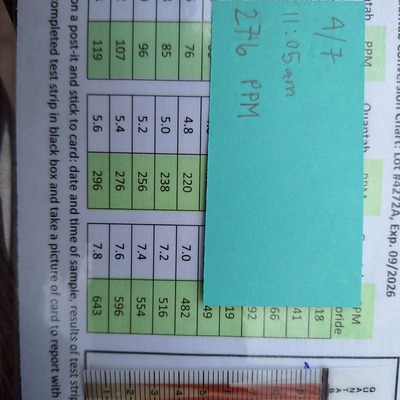 Conversion Chart: Lot #4272A, Exp. 09/2026
PPM
4/7
11:05am
276 PPM
18
41
66
92
19
49
76 4.8 220 7.0 482
85 5.0 238 7.2 516
96 5.2 256 7.4 554
107 5.4 276 7.6 596
119 5.6 296 7.8 643
on a post-it and stick to card: date and time of sample, results of test strip
completed test strip in black box and take a picture of card to report with
QUANTAB
5
4
3
2
1